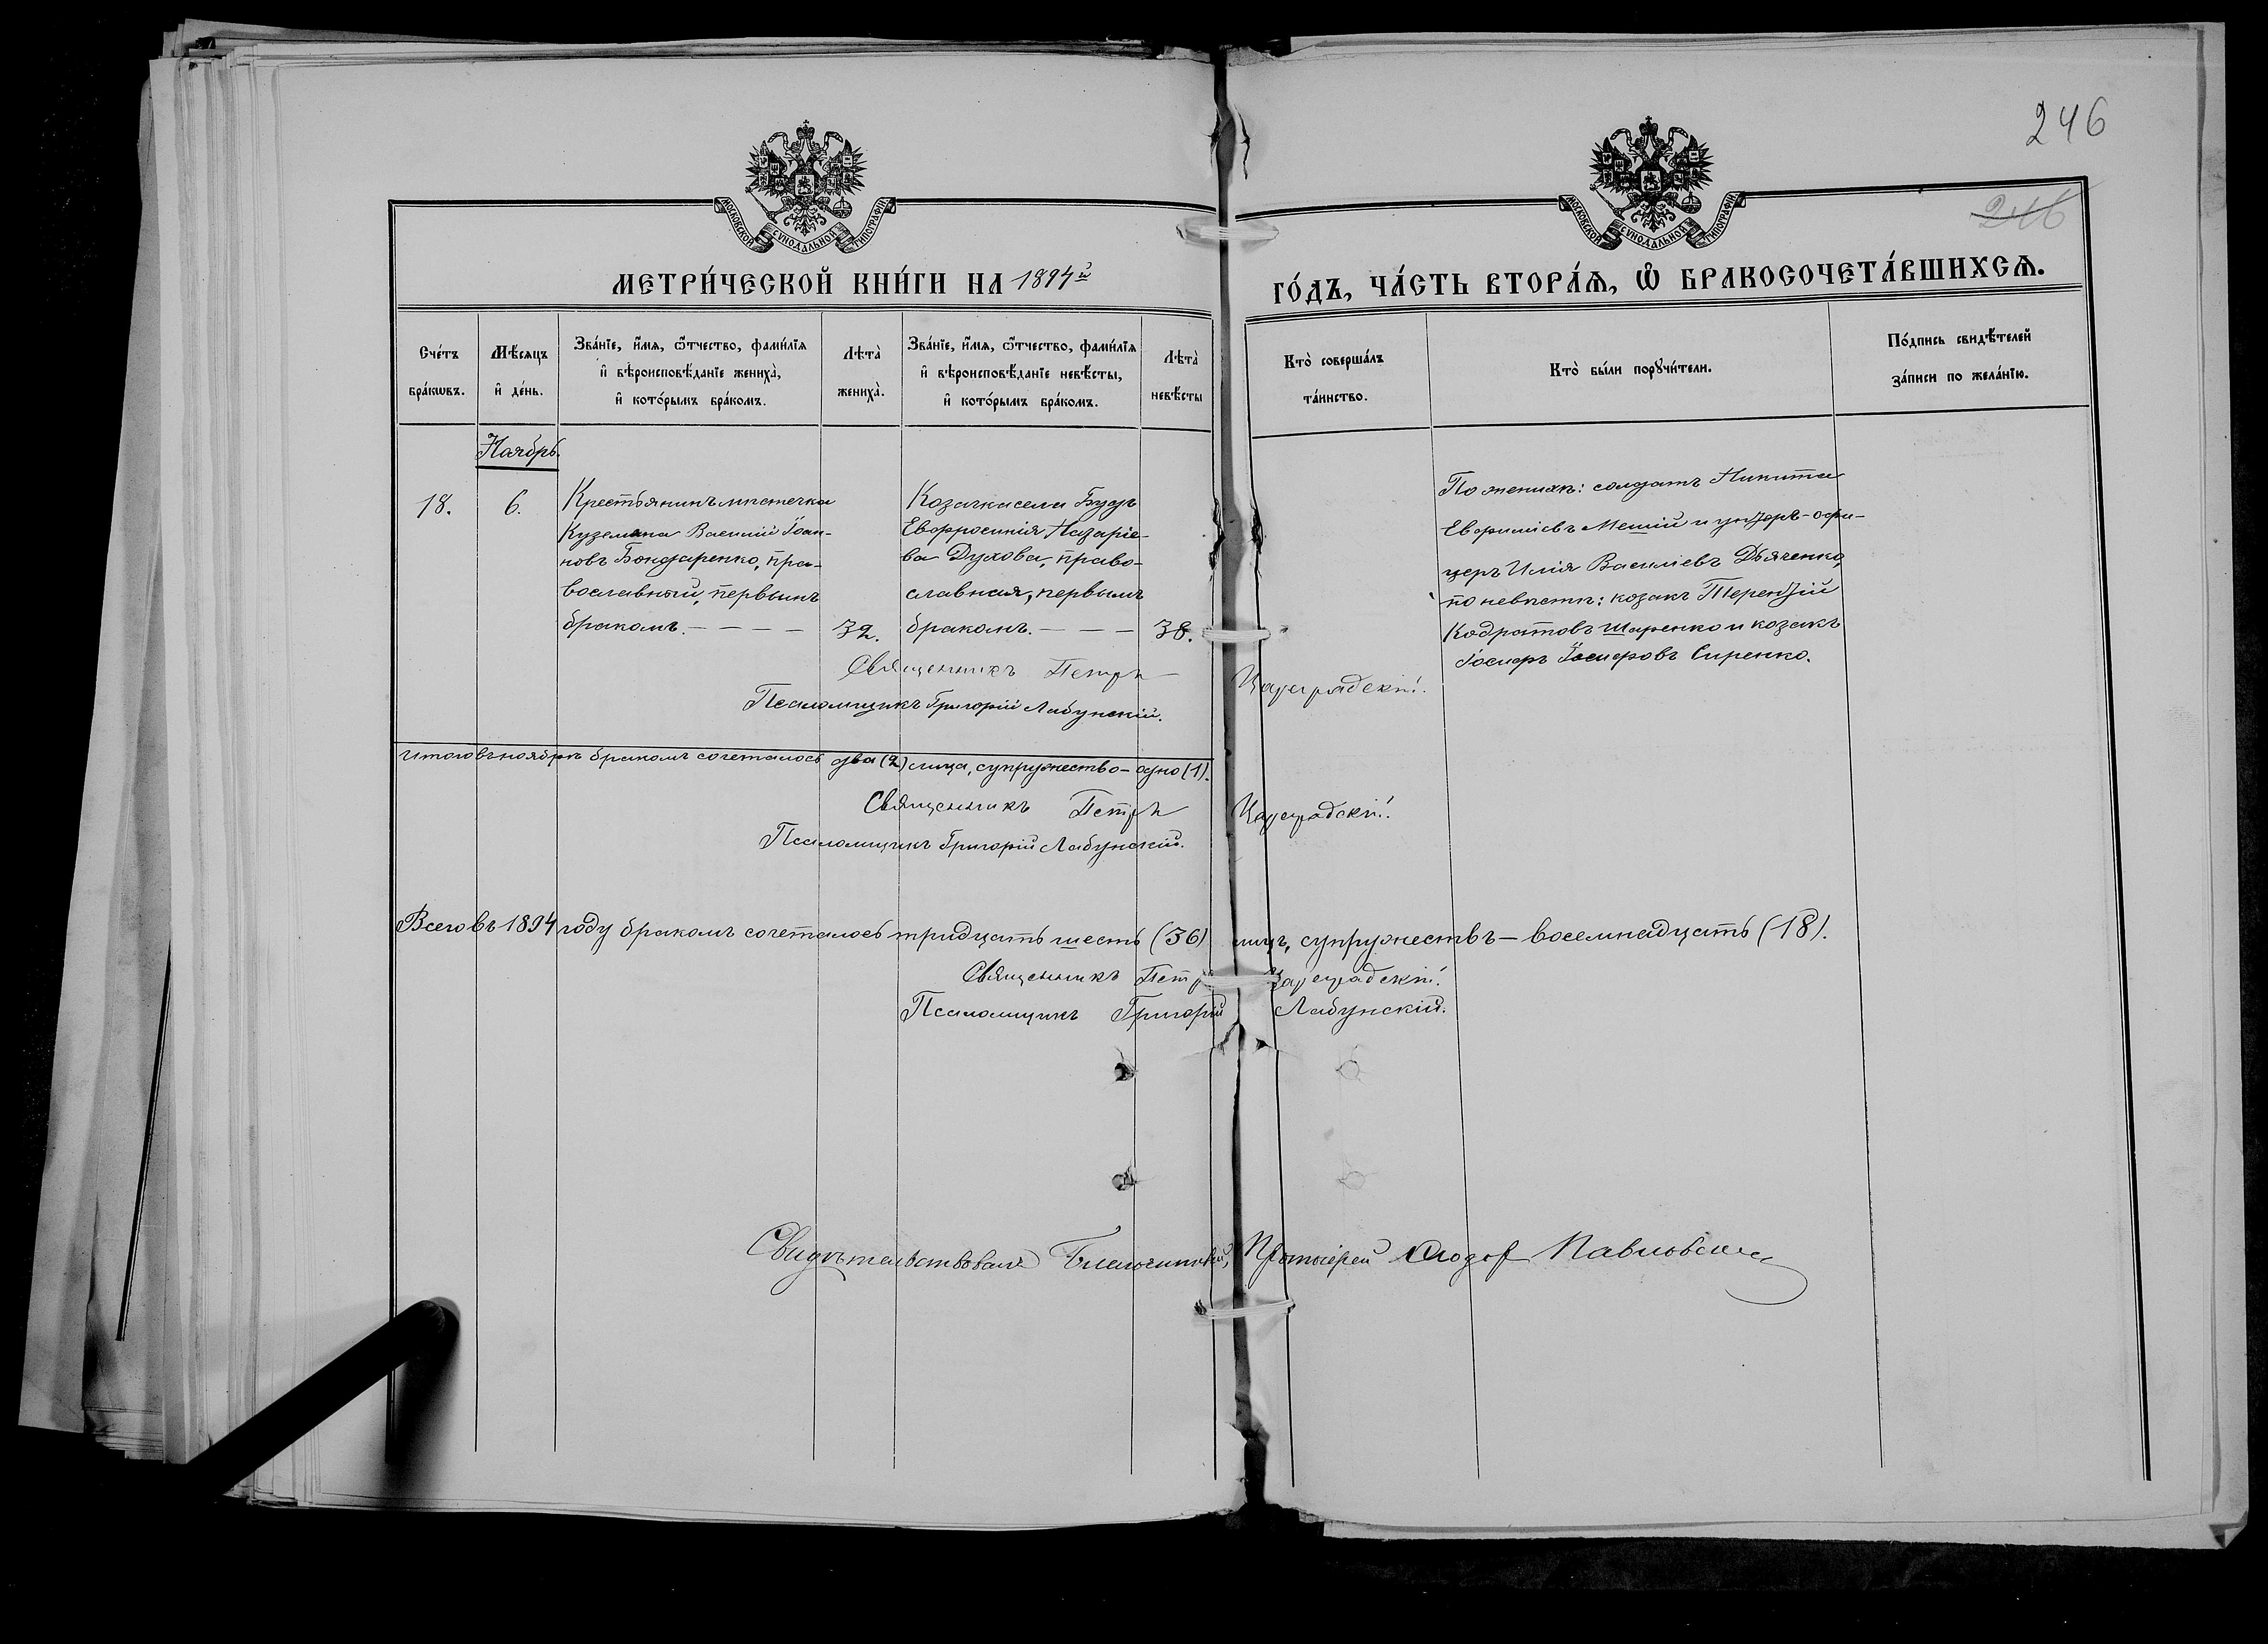 246
246
МОСКОВСКОЙ СѴНОДАЛЬНОЙ ТИПОГРАФІИ
МОСКОВСКОЙ СѴНОДАЛЬНОЙ ТИПОГРАФІИ
МЕТРИ́ЧЕСКОЙ КНИ́ГИ НА 1894й
ГО́ДЪ, ЧА́СТЬ ВТОРА́Ѧ, Ѽ БРАКОСОЧЕТА́ВШИХСѦ.
Сче́тъ
бра́кѡвъ.
Мѣ́сяцъ
и́ де́нь.
Зва́нїе, и́мя, ѻ́тчество, фами́лїя
и́ вѣроисповѣ́данїе жениха̀,
и́ кото́рымъ бра́комъ.
Лѣта̀
жениха̀.
Зва́нїе, и́мя, ѻ́тчество, фами́лїя
и́ вѣроисповѣ́данїе невѣ́сты,
и́ кото́рымъ бра́комъ.
Лѣта̀
невѣ́сты
Кто̀ соверша́лъ
та́инство.
Кто̀ бы́ли порꙋчи́тели.
По́дпись свидѣ́телей
за́писи по жела́нїю.
Ноябрь.
18.
6.
Крестьянинъ мѣстечка
Куземина Василій Іоан-
новъ Бондаренко, пра-
вославный, первымъ
бракомъ. — — — —
32.
Козачка села Будъ
Евфросинія Назаріе-
ва Духова, право-
славная, первымъ
бракомъ. — — —
38.
По женихѣ: солдатъ Никита
Евфиміевъ Мешій и унтеръ-офи-
церъ Илія Василіевъ Дьяченко,
по невѣстѣ: козакъ Терентій
Кодратовъ Шаренко и козакъ
Іосифъ Іосифовъ Сиренко.
Священникъ Петръ Цареградскій.
Псаломщикъ Григорій Лабунскій.
Итого въ ноябрѣ бракомъ сочеталось два (2) лица, супружество — одно (1).
Священникъ Петръ Цареградскій.
Псаломщикъ Григорій Лабунскій.
Всего въ 1894 году бракомъ сочеталось тридцать шесть (36) лицъ, супружествъ — восемнадцать (18).
Священникъ Петръ Цареградскій.
Псаломщикъ Григорій Лабунскій.
Свидѣтельствовалъ Благочинный, Протоіерей Павловскій